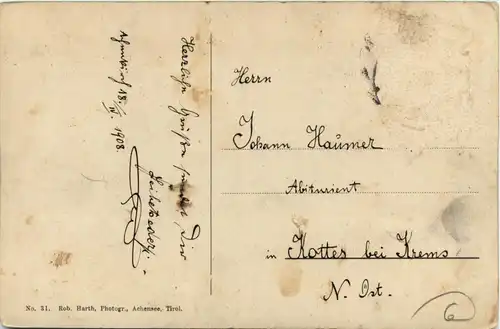 Herzliche Grüße sendet Dir
Achenkirch 18. IV. 1908.
Herrn
Johann Haumer
Abiturient
in Kottes bei Krems
N. Öst.
No. 31. Rob. Harth, Photogr., Achensee, Tirol.
6